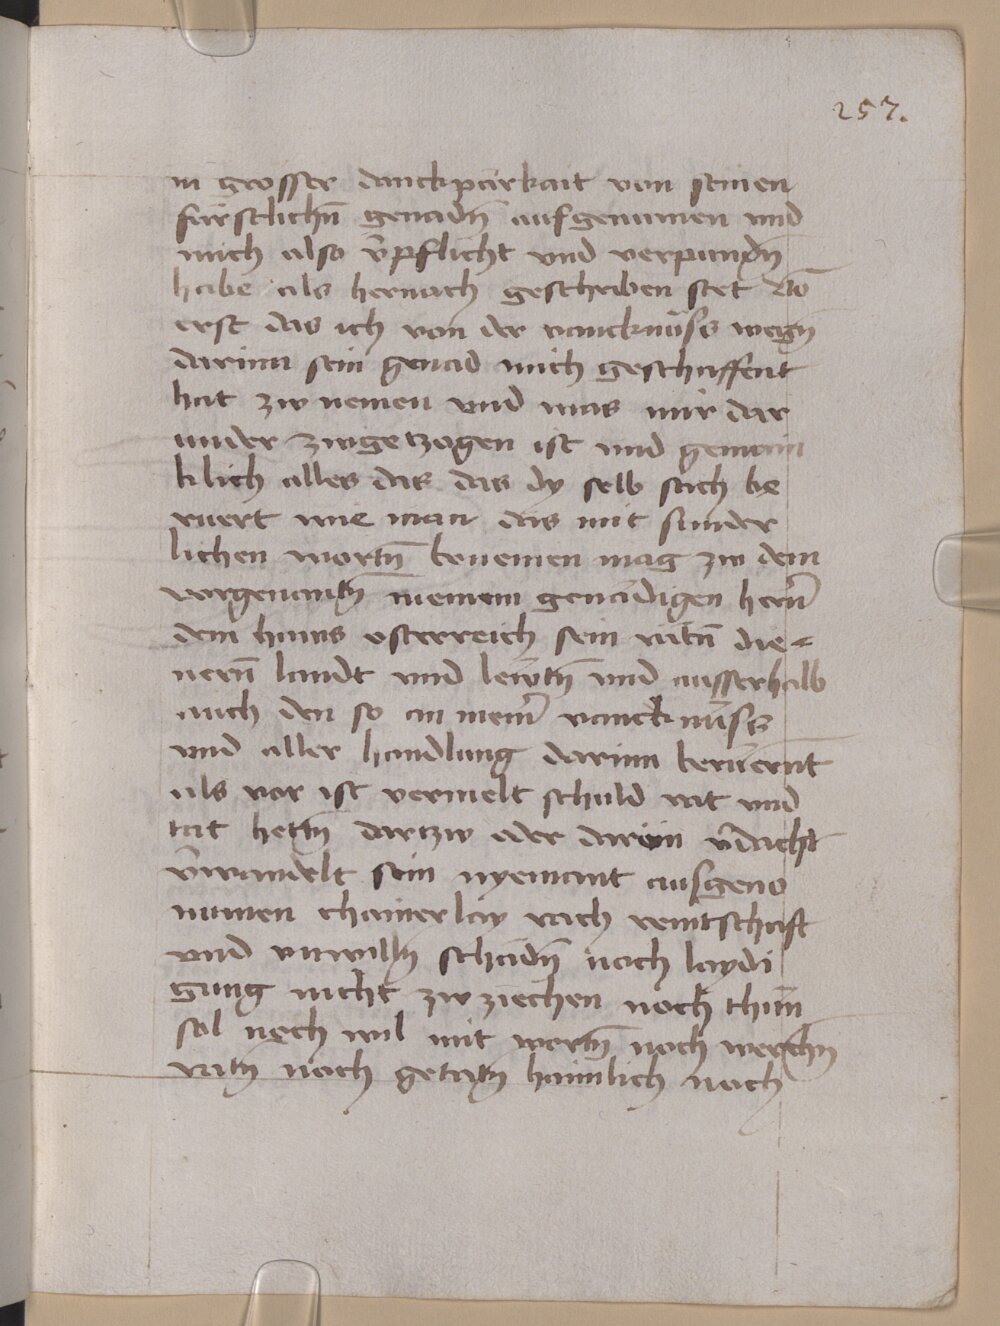 257.
in grosser danckpärkait von seinen
fürstlichn̄ genadn̄ aufgenumen und
mich also v̄pflicht vnd verpundn̄
habe als hernach geschriben stet
erst das ich von der vancknüss wegn̄
darinn sein genad mich geschaffent
hat zw nemen vnd was mir dar
under zwgetzogen ist und gemain
klich alles das das dy selb sach be
ruert wie man das mit sunder
lichen wortn̄ benemen mag zw dem
vorgenantn̄ meinem genädigen hern̄
dem hauss osterreich sein rätn̄ die-
nern̄ landt und lewtn̄ und ausserhalb
auch den so an mein̄ vancknüss
vnd aller handlung darinn beruernt
als vor ist vermelt schuld rat vnd
tat hettn̄ dartzw oder darein v̄dacht
v̄wandelt sein nyemant ausgeno
numen chainerlay rach veintschaft
vnd vnwilln̄ schadn̄ noch laydi
gung nicht zw ziechen noch thun
sol noch wil mit wortn̄ noch werchn̄
ratn̄ noch getatn̄ haimlich noch